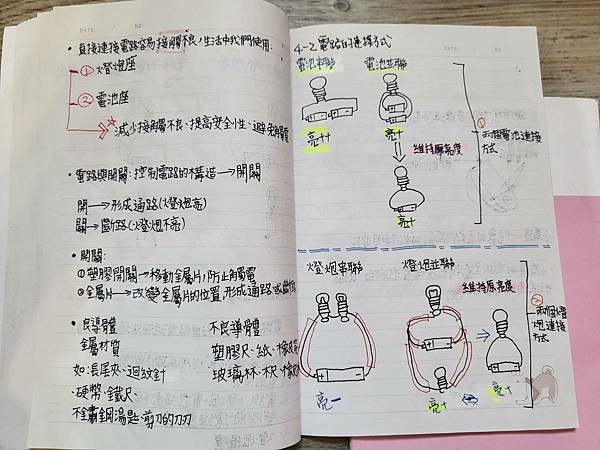 DATE
NO.
•直接連接電路容易接觸不良，生活中我們使用:
①燈炮座
②電池座
☆減少接觸不良、提高安全性、避免觸電
•電路與開關:控制電路的構造→開關
開→形成通路(燈炮亮)
關→斷路(燈炮不亮)
•開關:
①塑膠開關→移動金屬片,防止觸電
②金屬片→改變金屬片的位置,形成通路或斷
•良導體
金屬材質
如:長尾夾、迴紋針
、硬幣、鐵尺、
不鏽鋼湯匙、剪刀的刀刃
不良導體
塑膠尺、紙、橡皮
玻璃杯、木尺、橡皮
4-2電路的連接方式
DATE
NO.
電池串聯
電池並聯
亮++
亮+
維持原亮度
亮+
①
兩個電池連接
方式
燈炮串聯
燈炮並聯
維持原亮度
亮-
亮+
亮+
②
兩個燈
炮連接
方式